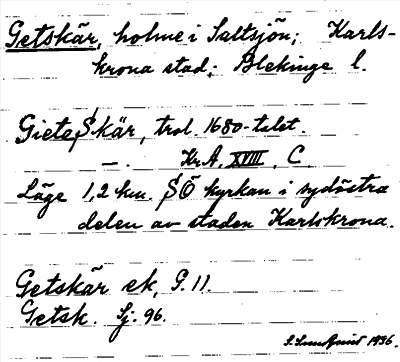 Getskär, holme i Saltsjön; Karls-
krona stad; Blekinge l.
Giete Skär, trol. 1680-talet.
—. Kr.A. XVIII, C
Läge 1,2 km. SÖ kyrkan i sydöstra
delen av staden Karlskrona.
Getskär ek, G. 11.
Getsk. Sj. 96.
1936.